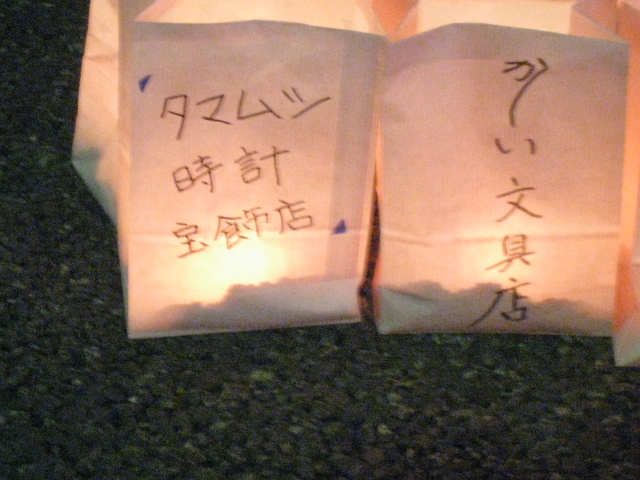 タマムシ
時計
宝飾店
かしい文具店